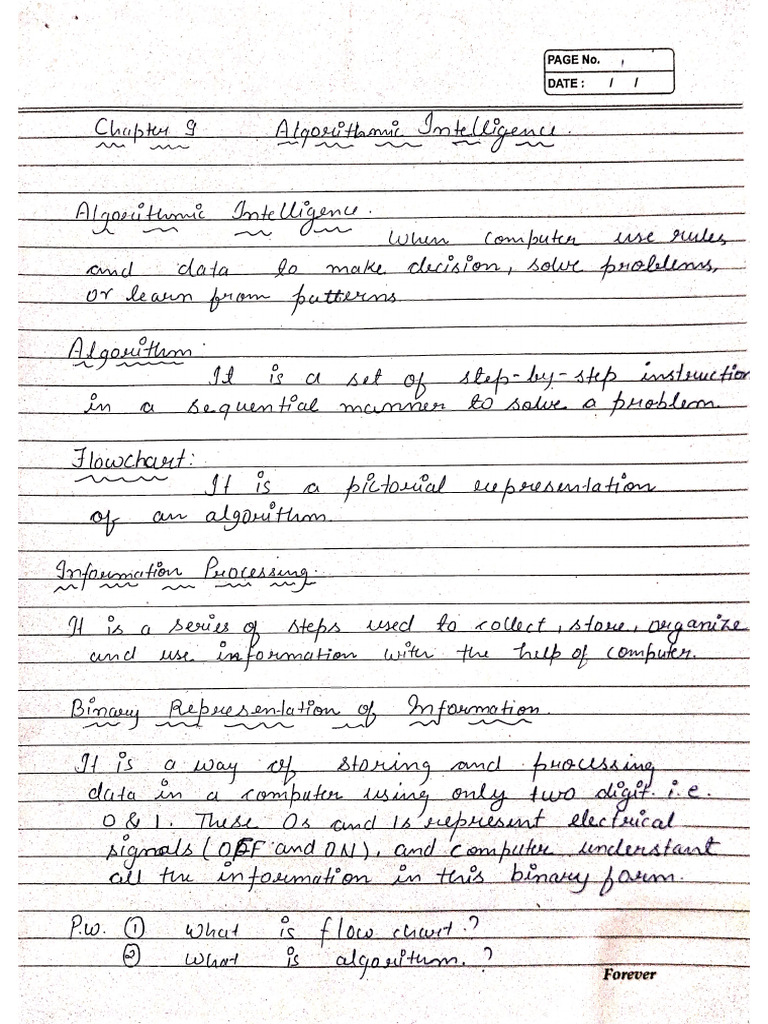 PAGE No. 1
DATE : / /
Chapter 9 Algorithmic Intelligence.
Algorithmic Intelligence.
When computer use rules
and data to make decision, solve problems,
or learn from patterns
Algorithm:
It is a set of step-by-step instruction
in a sequential manner to solve a problem.
Flowchart:
It is a pictorial representation
of an algorithm.
Information Processing.
It is a series of steps used to collect, store, organize
and use information with the help of computer.
Binary Representation of Information.
It is a way of storing and processing
data in a computer using only two digit. i.e.
0 & 1. These 0s and 1s represent electrical
signals (OFF and ON), and computer understant
all the information in this binary form.
P.W. ① What is flow chart.?
② What is algorithm.?
Forever